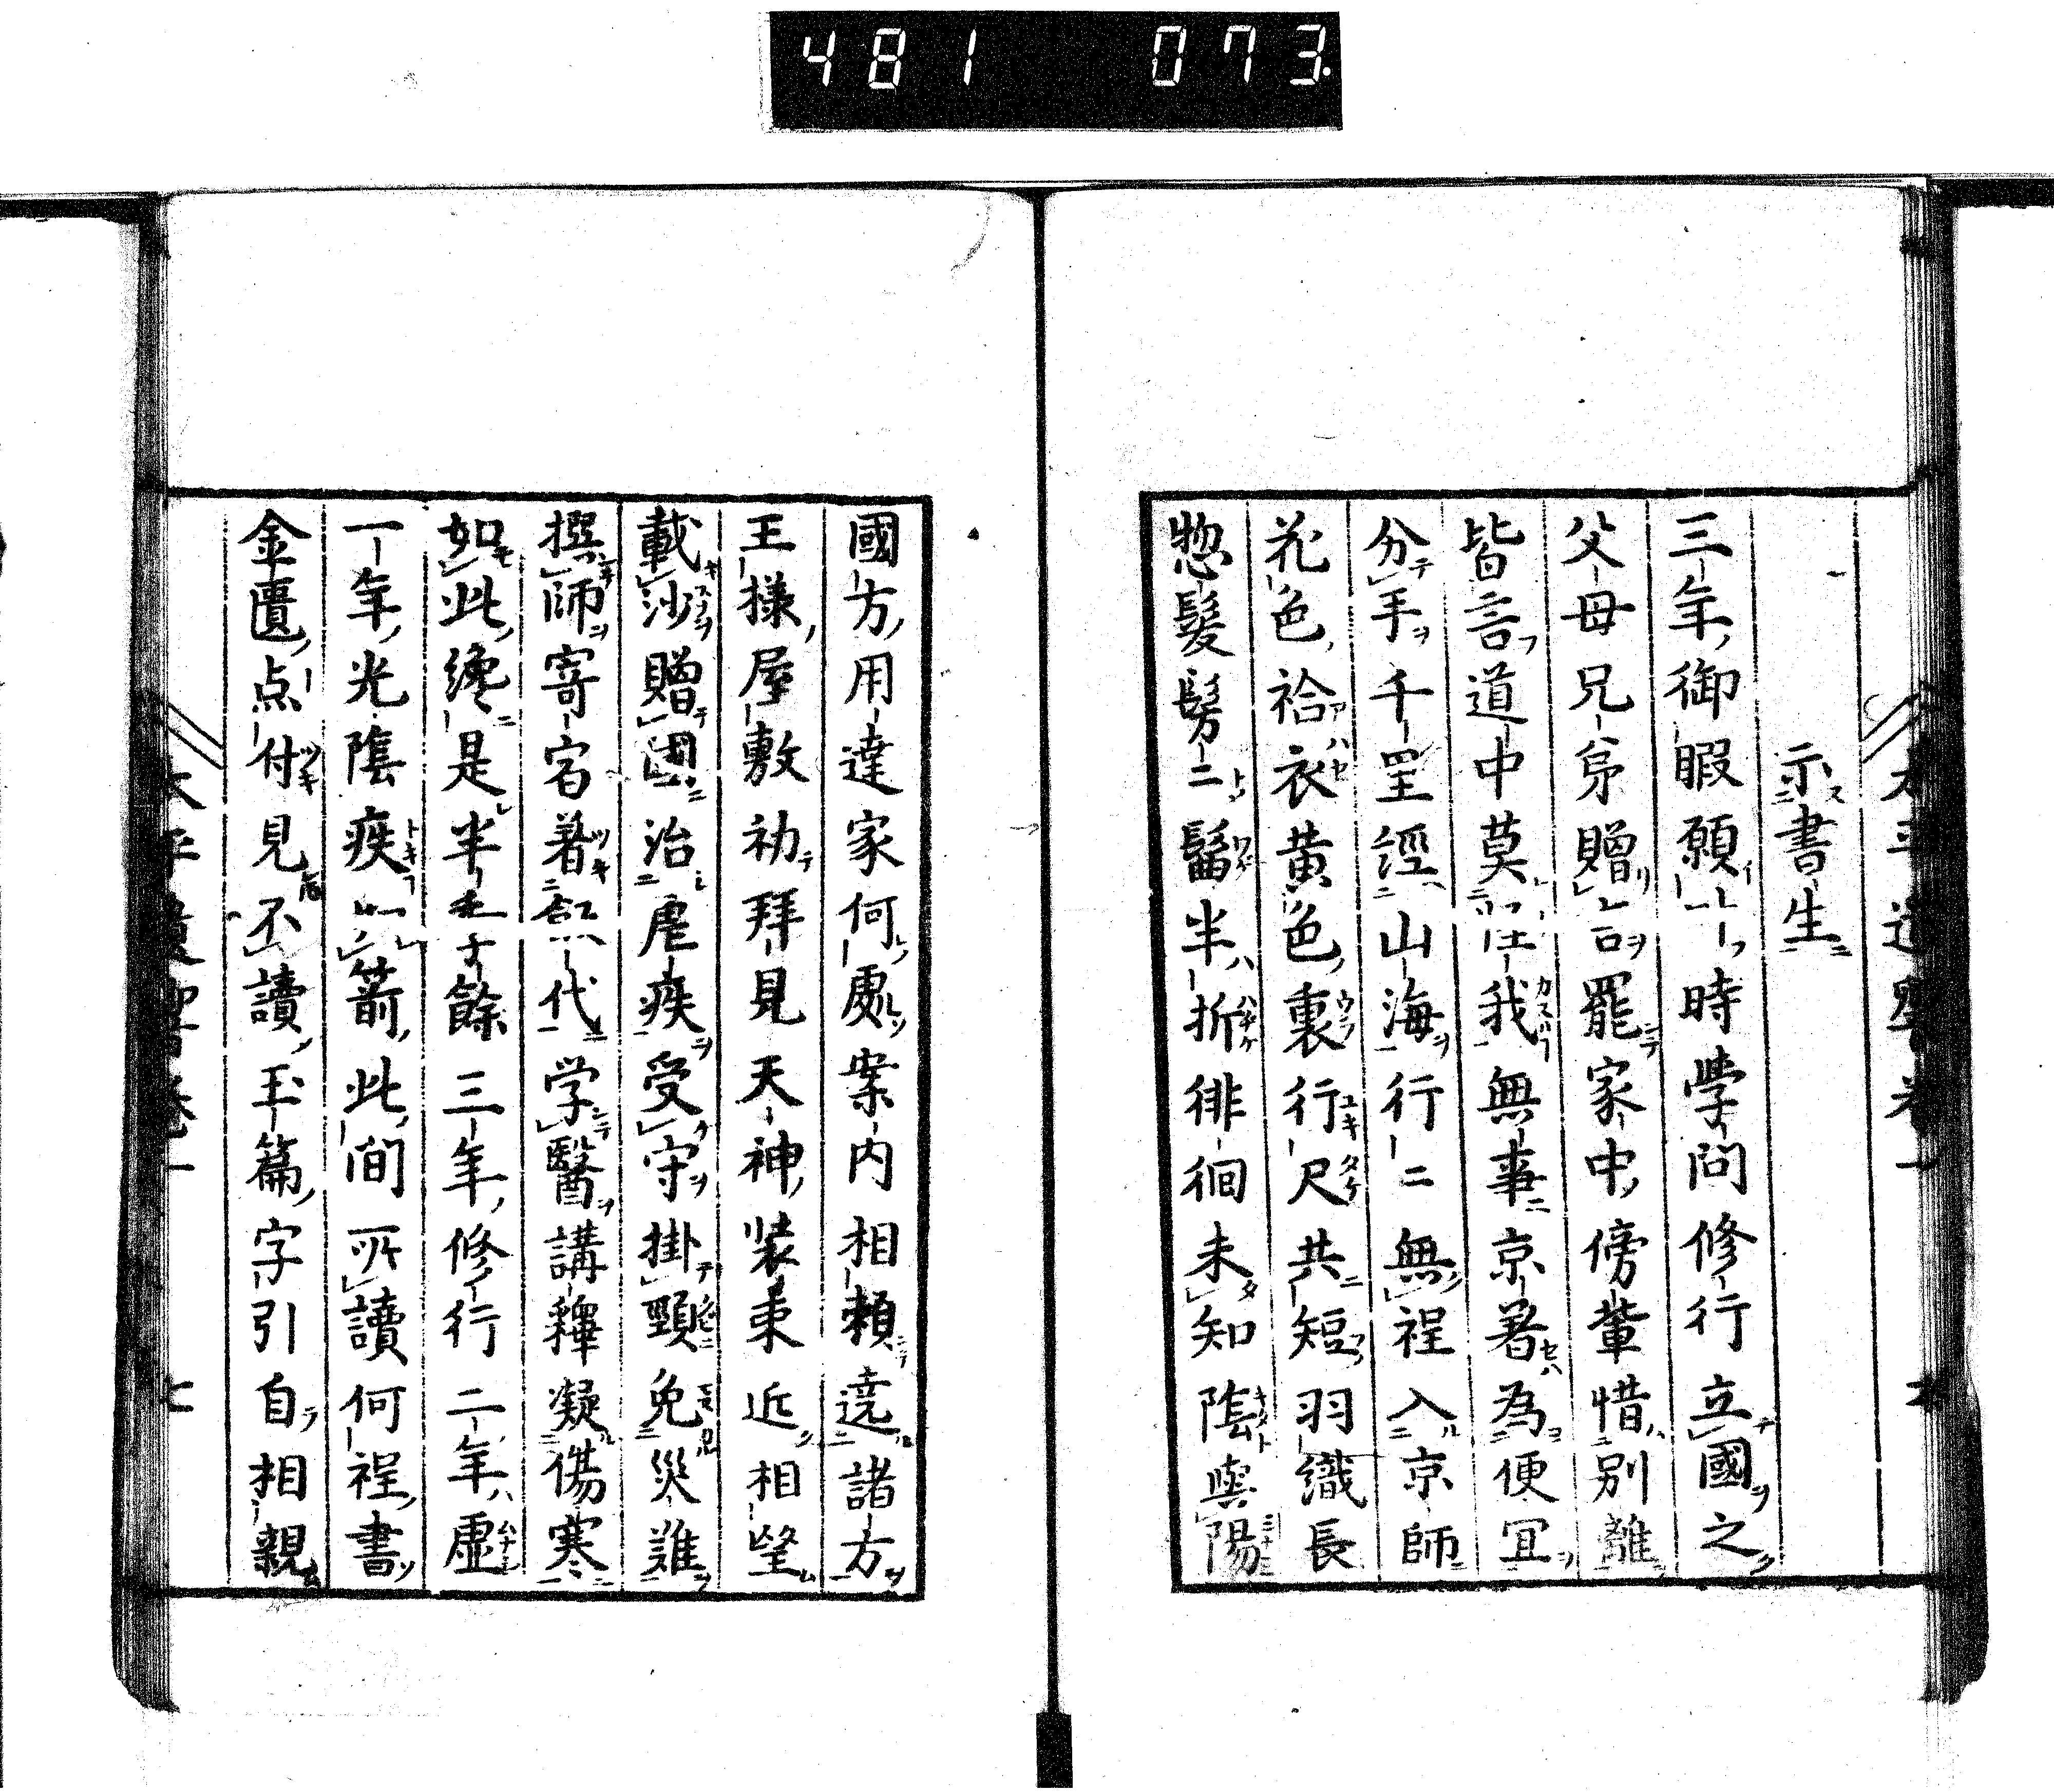 481 073
示書生
三年御暇願 時學問修行立國之
父母兄弟贈言罷家中傍輩惜別離
皆言道中莫 我無事京著為便宜
分手千里經山海行二無程入京師
花色袷衣黄色裏行尺共短羽織長
惣髮髣二髷半折徘徊未知陰與陽
國方用達家何處案内相賴遶諸方
王様屋敷初拜見天神装束近相望
載沙贈國治瘧疾受守掛頸免災難
撰師寄宿著 代學醫講釋凝傷寒
如此纔是半 餘三年修行二年虛
一年光陰疾 箭此間所讀何程書
金匱点付見不讀玉篇字引自相親